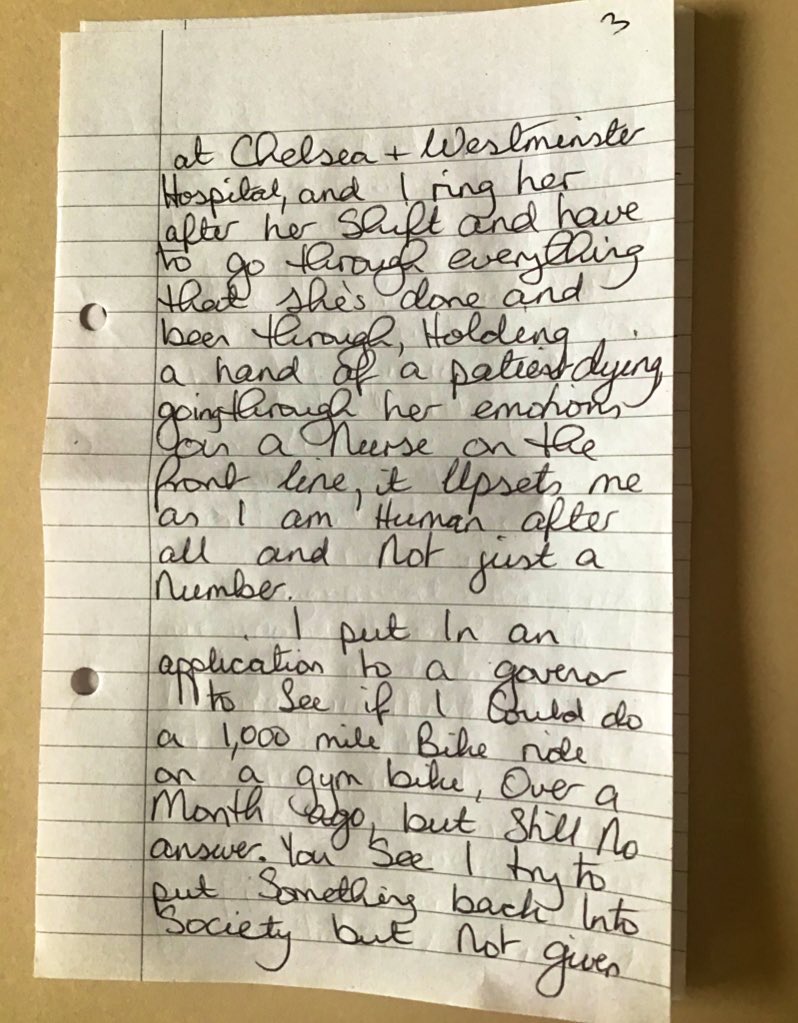 3
at Chelsea + Westminster
Hospital, and I ring her
after her Shift and have
to go through everything
that she's done and
been through, Holding
a hand of a patient dying,
going through her emotions
as a Nurse on the
front line, it Upsets me
as I am Human after
all and Not just a
Number.
I put In an
application to a govenor
to See if I Could do
a 1,000 mile Bike ride
on a gym bike, Over a
Month ago, but Still No
answer. You See I try to
put Something back Into
Society but Not given